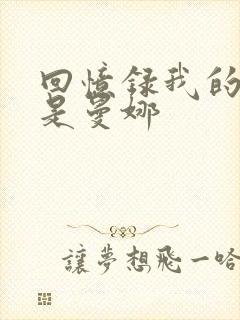 回憶録我的
是曼娜
讓夢想飛一哈